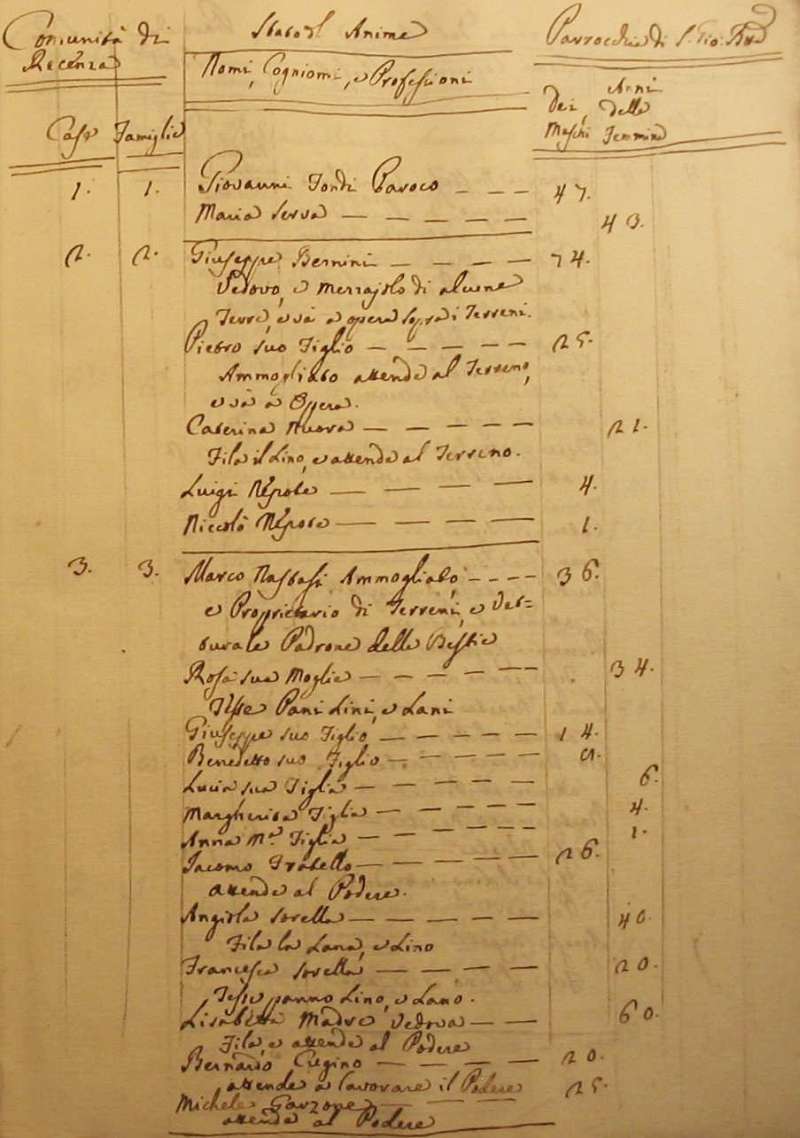 Comunità di Recenza
Stato d'Anime
Parrocchia di S. Gio. Bta
Nomi, Cogniomi, e Professioni
Anni
dei Maschi
delle Femmine
Case Famiglie
1. 1. Giovanni Fondi Paroco — — — 47.
Maria Serva — — — — 40.
2. 2. Giuseppe Bernini — — — — 74.
Vedovo, e Mezzajolo di alcune
Terre, e và a opera sopra i Terreni.
Pietro suo Figlio — — — — — 25.
Ammogliato attende al Terreno,
e và a Opera.
Caterina Nuora — — — — — 21.
Fila il Lino, e attende al Terreno.
Luigi Nepote — — — — 4.
Niccolò Nepote — — — — — 1.
3. 3. Marco Nastasi Ammogliato, — — — — 36.
e Proprietario di Terreni, e Vet=
turale Padrone delle Bestie
Rosa sua Moglie — — — — — — 34.
Tesse Pani Lini, e Lani
Giuseppe suo Figlio — — — — — 14.
Benedetto suo Figlio — — — — — 9.
Lucia sua Figlia — — — — — 6.
Margherita Figlia — — — — — 4.
Anna Mª. Figlia — — — — — 1.
Jacomo Fratello — — — — — 26.
attende al Podere.
Angiola Sorella — — — — — 40.
Fila la Lana, e Lino
Francesca Sorella — — — — 20.
Tesse panno Lino, e Lano.
Lisabetta Madre Vedova — — 60.
Fila, e attende al Podere
Bernardo Cugino — — — — 20.
attende a lavorare il Podere
Michele Garzone — — — — 25.
attende al Podere